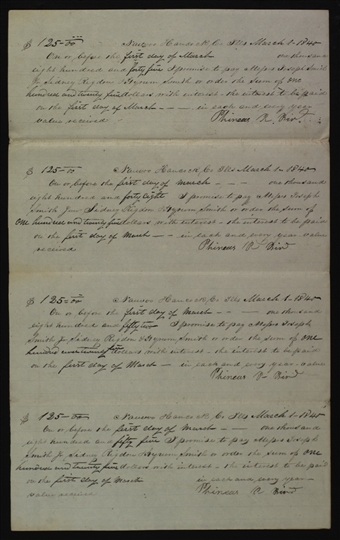 $ 125-00 Nauvoo Hancock Co Ills March 1- 1840
On or before the first day of March one thousand
eight hundred and forty five I promise to pay Messrs Joseph Smith
Jr Sidney Rigdon Hyrum Smith or order the sum of one
hundred and twenty five dollars with interest - the interest to be paid
on the first day of March - - - in each and every year
value received Phineas R. Bird
$ 125-00 Nauvoo Hancock Co Ills March 1- 1840
On or before the first day of March - - - one thousand
eight hundred and forty eight I promise to pay Messrs Joseph
Smith Jr Sidney Rigdon Hyrum Smith or order the sum of
one hundred and twenty five dollars with interest - the interest to be paid
on the first day of March - - - in each and every year value
received Phineas R. Bird
$ 125-00 Nauvoo Hancock Co Ills March 1- 1840
On or before the first day of March - - - one thousand
eight hundred and fifty two I promise to pay Messrs Joseph
Smith Jr Sidney Rigdon Hyrum Smith or order the sum of one
hundred and twenty five dollars with interest - the interest to be paid
on the first day of March - in each and every year value
Phineas R. Bird
$ 125-00 Nauvoo Hancock Co Ills March 1- 1840
On or before the first day of March - - - one thousand
eight hundred and fifty five I promise to pay Messrs Joseph
Smith Jr Sidney Rigdon Hyrum Smith or order the sum of one
hundred and twenty five dollars with interest - the interest to be paid
on the first day of March in each and every year -
value received Phineas R. Bird